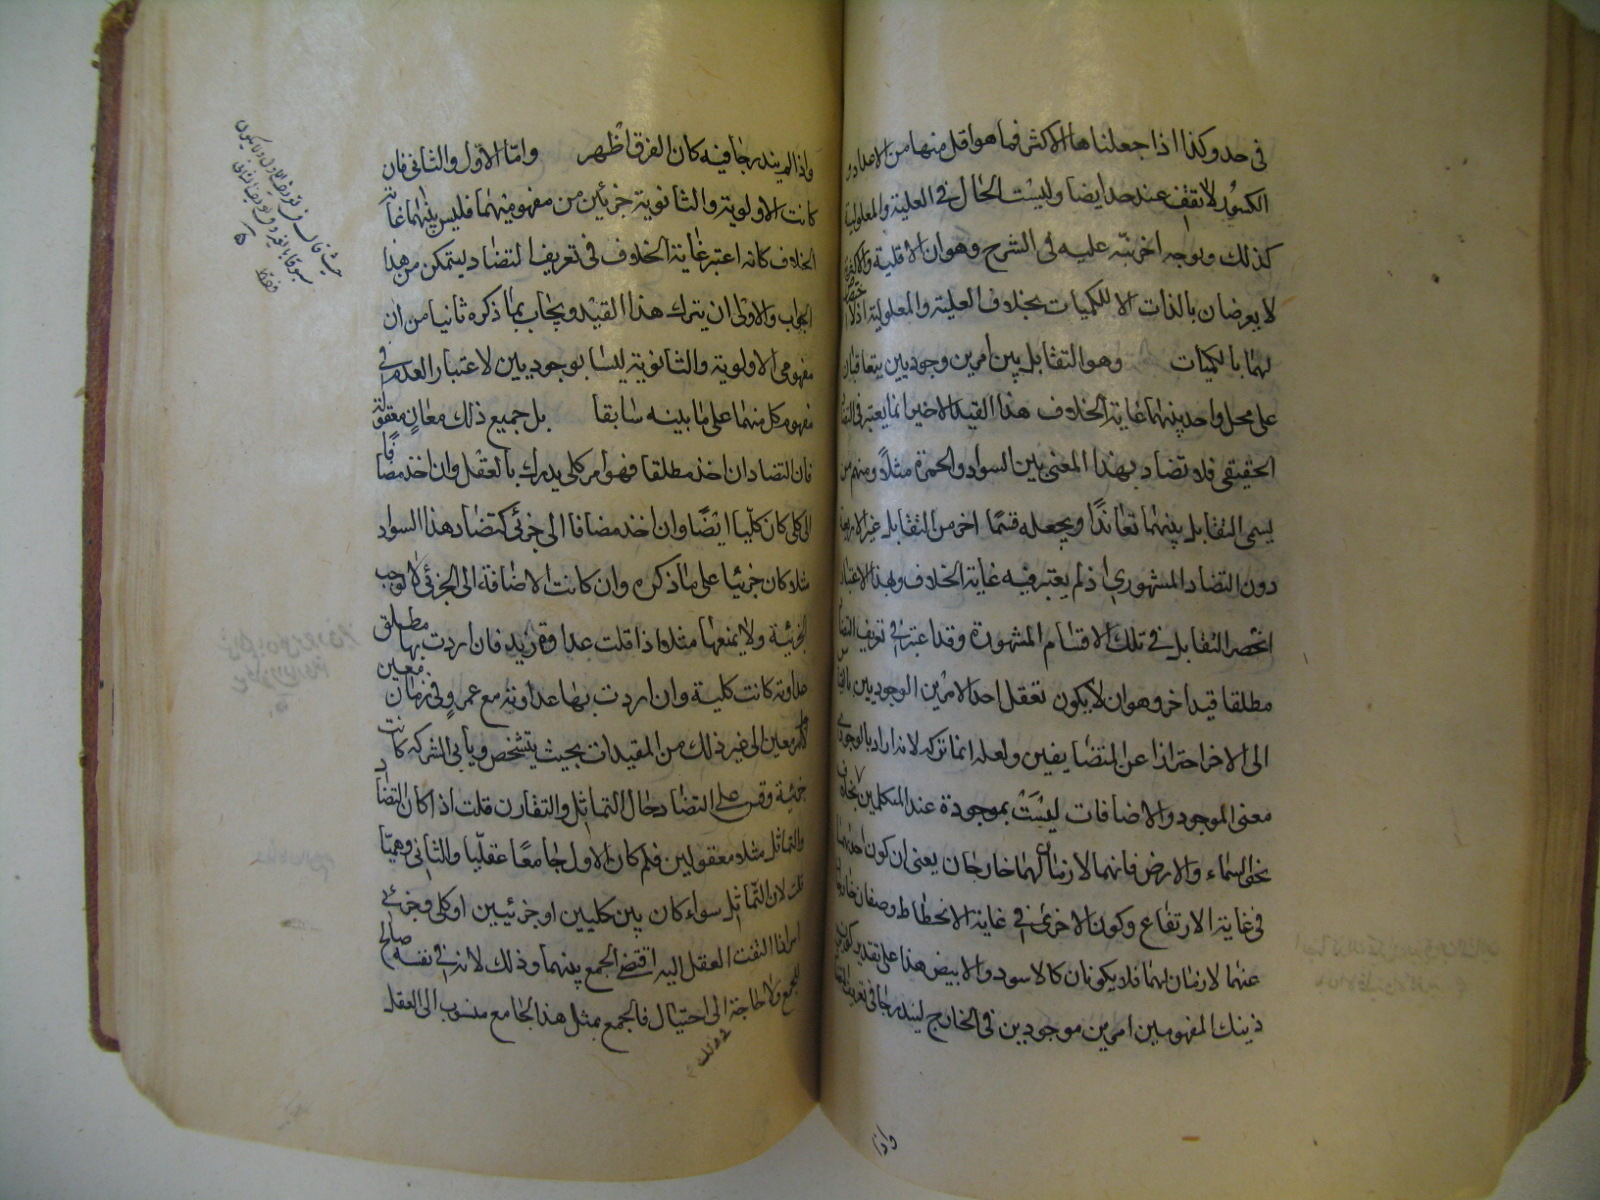 فى حد وكذا اذا جعلناها الاكثر فما هو اقل منها من الاعداد و
الكسور لا تقف عند حد ايضا وليست الحال فى العلية والمعلولية
كذلك وبوجه اخر نبّه عليه فى الشرح وهو ان الاقلية والاكثرية
لا يعرضان بالذات الا للكميات بخلاف العلية والمعلولية اذ لا
لهما بالكميات وهو التقابل بين امرين وجوديين يتعاقبان
على محل واحد بينهما غاية الخلاف هذا القيد الاخير انما يعتبر فى التضاد
الحقيقى فلا تضاد بهذا المعنى بين السواد والحمرة مثلاً ومنهم من
يسمى التقابل بينهما تعاندًا ويجعله قسمًا اخر من التقابل غير الاربعة
دون التضاد المشهورى اذ لم يعتبر فيه غاية الخلاف وبهذا الاعتبار
انحصر التقابل فى تلك الاقسام المشهورة وقد اعتبر فى تعريف التضاد
مطلقا قيد اخر وهو ان لا يكون تعقل احد الامرين الوجوديين بالقياس
الى الاخر احترازا عن المتضايفين ولعله انما تركه لانه اراد بالوجودى
معنى الموجود والاضافات ليست بموجودة عند المتكلمين بخلاف
نحو السماء والارض فانهما لازمان لهما خارجان يعنى ان كون احدهما
فى غاية الارتفاع وكون الاخرى فى غاية الانحطاط وصفان خارجان
عنهما لازمان لهما فلا يكونان كالاسود والابيض هذا على تقدير كون
ذينك المفهومين امرين موجودين فى الخارج ليندرجا فى تعريف التضاد
واذا
واذا لم يندرجا فيه كان الفرق اظهر وامّا الاول والثانى فان
كانت الاولوية والثانوية جزئين من مفهوميهما فليس بينهما غاية
الخلاف كانه اعتبر غاية الخلاف فى تعريف التضاد ليتمكن من هذا
الجواب والاولى ان يترك هذا القيد ويجاب بما ذكره ثانيا من ان
مفهومى الاولوية والثانوية ليسا بوجوديين لاعتبار العدم فى
مفهوم كل منهما على ما بينه سابقا بل جميع ذلك معانٍ معقولة
فان التضاد ان اخذ مطلقا فهو امر كلى يدرك بالعقل وان اخذ مضافًا
الى كلى كان كليّا ايضًا وان اخذ مضافا الى جزئى كتضاد هذا السواد
مثلا كان جزئيا على ما ذكره وان كانت الاضافة الى الجزئى لا توجب
الجزئية ولا يمنعها مثلا اذا قلت عداوة زيد فان اردت بها مطلق
عداوته كانت كلية وان اردت بها عداوته مع عمرو فى زمان معين
لامر معين الى غير ذلك من المقيدات بحيث يتشخص ويأبى الشركة كانت
جزئية وقس على التضاد حال التماثل والتقارن قلت اذا كان التضاد
والتماثل مثلا معقولين فلم كان الاول جامعًا عقليًا والثانى وهميًا
قلت لان التماثل سواء كان بين كليين او جزئيين او كلى وجزئى
امر اذا التفت العقل اليه اقتضى الجمع بينهما وذلك لانه فى نفسه صالح
للجمع ولا حاجة الى احتيال فالجمع بمثل هذا الجامع منسوب الى العقل